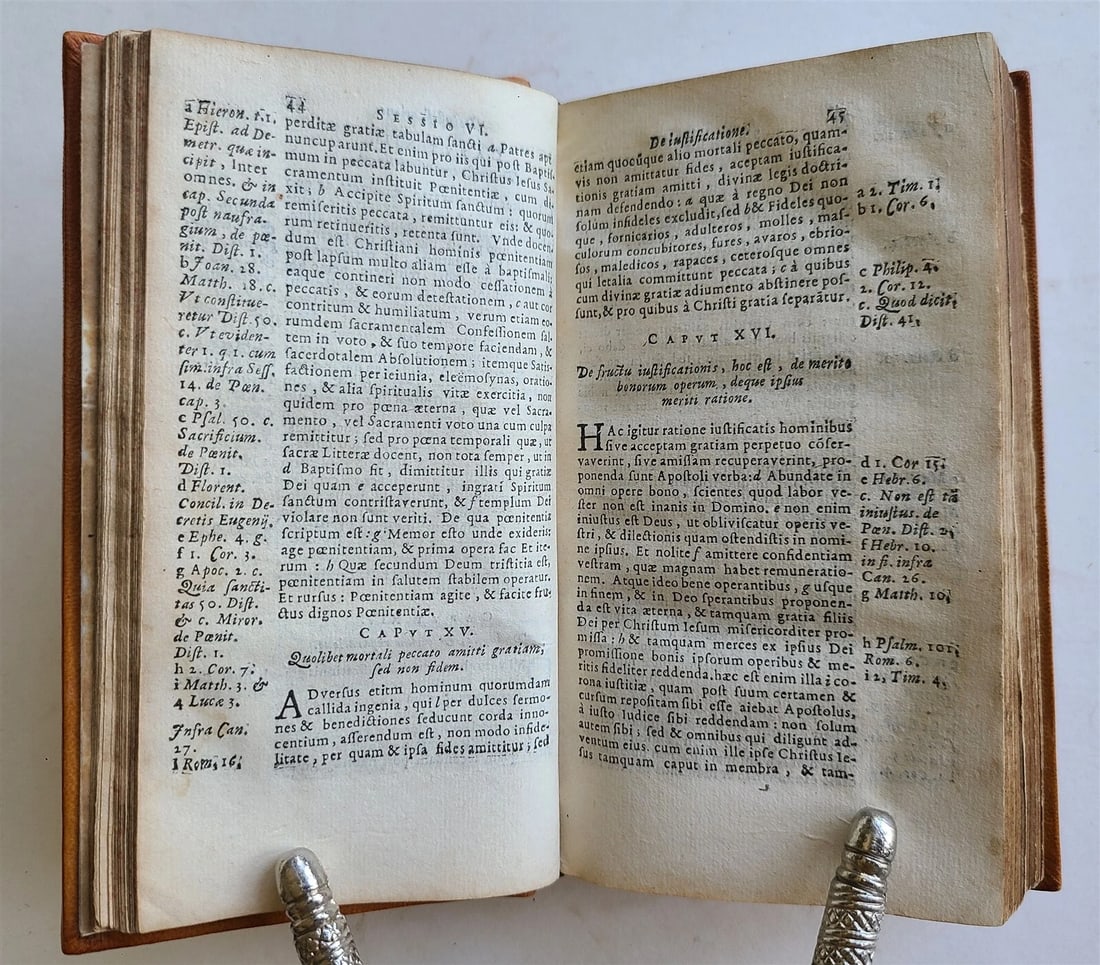 44
SESSIO VI.
a Hieron. t. 1.
Epist. ad De-
metr. quæ in-
cipit, Inter
omnes. & in
cap. Secunda
post naufra-
gium, de pœ-
nit. Dist. 1.
b Joan. 28.
Matth. 18. c.
Vt constitue-
retur Dist. 50.
c. Vt eviden-
ter 1. q 1. cum
sim. infra Sess.
14. de Pœn.
cap. 3.
c Psal. 50. c.
Sacrificium.
de Pœnit.
Dist. 1.
d Florent.
Concil. in De-
cretis Eugenij.
e Ephe. 4. g.
f 1. Cor. 3.
g Apoc. 2. c.
Quia sancti-
tas 50. Dist.
& c. Miror.
de Pœnit.
Dist. 1.
h 2. Cor. 7.
i Matth. 3. &
4 Lucæ 3.
Infra Can.
27.
l Rom. 16.
perditæ gratiæ tabulam sancti a Patres apt
nuncuparunt. Et enim pro iis qui post Baptis-
mum in peccata labuntur, Christus Iesus Sa-
cramentum instituit Pœnitentiæ, cum di-
xit; b Accipite Spiritum sanctum: quorum
remiseritis peccata, remittuntur eis: & quo-
rum retinueritis, retenta sunt. Vnde docen-
dum est Christiani hominis pœnitentiam
post lapsum multo aliam esse à baptismali;
eaque contineri non modo cessationem à
peccatis, & eorum detestationem, c aut cor
contritum & humiliatum, verum etiam eo-
rumdem sacramentalem Confessionem sal-
tem in voto, & suo tempore faciendam, &
sacerdotalem Absolutionem; itemque Satis-
factionem per ieiunia, eleëmosynas, oratio-
nes, & alia spiritualis vitæ exercitia, non
quidem pro pœna æterna, quæ vel Sacra-
mento, vel Sacramenti voto una cum culpa
remittitur; sed pro pœna temporali quæ, ut
sacræ Litteræ docent, non tota semper, ut in
d Baptismo fit, dimittitur illis qui gratiæ
Dei quam e acceperunt, ingrati Spiritum
sanctum contristaverunt, & f templum Dei
violare non sunt veriti. De qua pœnitentia
scriptum est: g Memor esto unde exideris:
age pœnitentiam, & prima opera fac Et ite-
rum: h Quæ secundum Deum tristitia est,
pœnitentiam in salutem stabilem operatur.
Et rursus: Pœnitentiam agite, & facite fru-
ctus dignos Pœnitentiæ.
CAPVT XV.
Quolibet mortali peccato amitti gratiam,
sed non fidem.
ADversus etitm hominum quorumdam
callida ingenia, qui l per dulces sermo-
nes & benedictiones seducunt corda inno-
centium, asserendum est, non modo infide-
litate, per quam & ipsa fides amittitur; sed
De iustificatione.
45
etiam quocũque alio mortali peccato, quam-
vis non amittatur fides, aceptam iustifica-
tionis gratiam amitti, divinæ legis doctri-
nam defendendo: a quæ à regno Dei non
solum infideles excludit, sed b & Fideles quo-
que, fornicarios, adulteros, molles, mas-
culorum concubitores, fures, avaros, ebrio-
sos, maledicos, rapaces, ceterosque omnes
qui letalia committunt peccata; c à quibus
cum divinæ gratiæ adiumento abstinere pos-
sunt, & pro quibus à Christi gratia separãtur.
CAPVT XVI.
De fructu iustificationis, hoc est, de merito
bonorum operum, deque ipsius
meriti ratione.
HAc igitur ratione iustificatis hominibus
sive acceptam gratiam perpetuo cõser-
vaverint, sive amissam recuperaverint, pro-
ponenda sunt Apostoli verba: d Abundate in
omni opere bono, scientes quod labor ve-
ster non est inanis in Domino. e non enim
iniustus est Deus, ut obliviscatur operis ve-
stri, & dilectionis quam ostendistis in nomi-
ne ipsius. Et nolite f amittere confidentiam
vestram, quæ magnam habet remuneratio-
nem. Atque ideo bene operantibus, g usque
in finem, & in Deo sperantibus proponen-
da est vita æterna, & tamquam gratia filiis
Dei per Christum Iesum misericorditer pro-
missa: h & tamquam merces ex ipsius Dei
promissione bonis ipsorum operibus & me-
ritis fideliter reddenda. hæc est enim illa i co-
rona iustitiæ, quam post suum certamen &
cursum repositam sibi esse aiebat Apostolus,
à iusto Iudice sibi reddendam: non solum
autem sibi; sed & omnibus qui diligunt ad-
ventum eius. cum enim ille ipse Christus Ie-
sus tamquam caput in membra, & tam-
a 2. Tim. 1.
b 1. Cor. 6.
c Philip. 4.
2. Cor. 12.
c. Quod dicit,
Dist. 41.
d 1. Cor 15.
e Hebr. 6.
c. Non est tã
iniustus. de
Pœn. Dist. 2.
f Hebr. 10.
in fi. infra
Can. 26.
g Matth. 10.
h Psalm. 101.
Rom. 6.
i 2, Tim. 4.